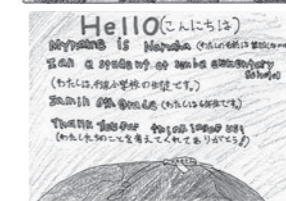 Hello(こんにちは)
My name is Haruka (わたしの名前は
I am a student at elementary
school
(わたしは、小学校の生徒です。)
I am in 6th Grade (わたしは6年生です。)
Thank You for thinking of us!
(わたしたちのことを考えてくれてありがとう!)